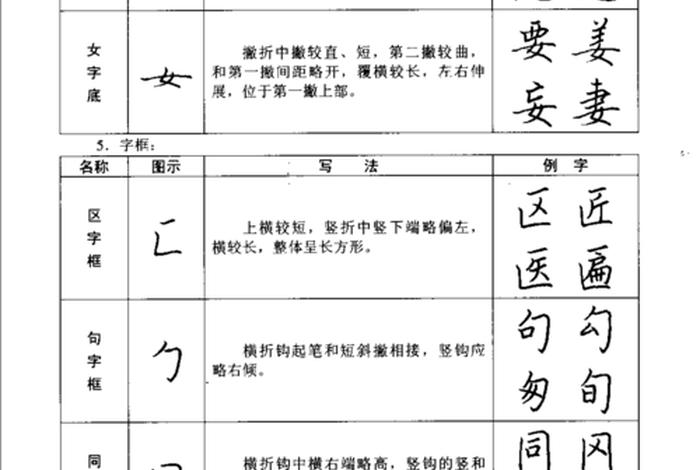 女字底
女
撇折中撇较直、短，第二撇较曲，
和第一撇间距略开，覆横较长，左右伸
展，位于第一撇上部。
要 姜
妄 妻
5．字框：
名称 图示 写 法 例 字
区字框
匚
上横较短，竖折中竖下端略偏左，
横较长，整体呈长方形。
区 匠
医 匾
句字框
勹
横折钩起笔和短斜撇相接，竖钩应
略右倾。
句 勾
匆 旬
同
横折钩中横右端略高，竖钩的竖和
同 冈